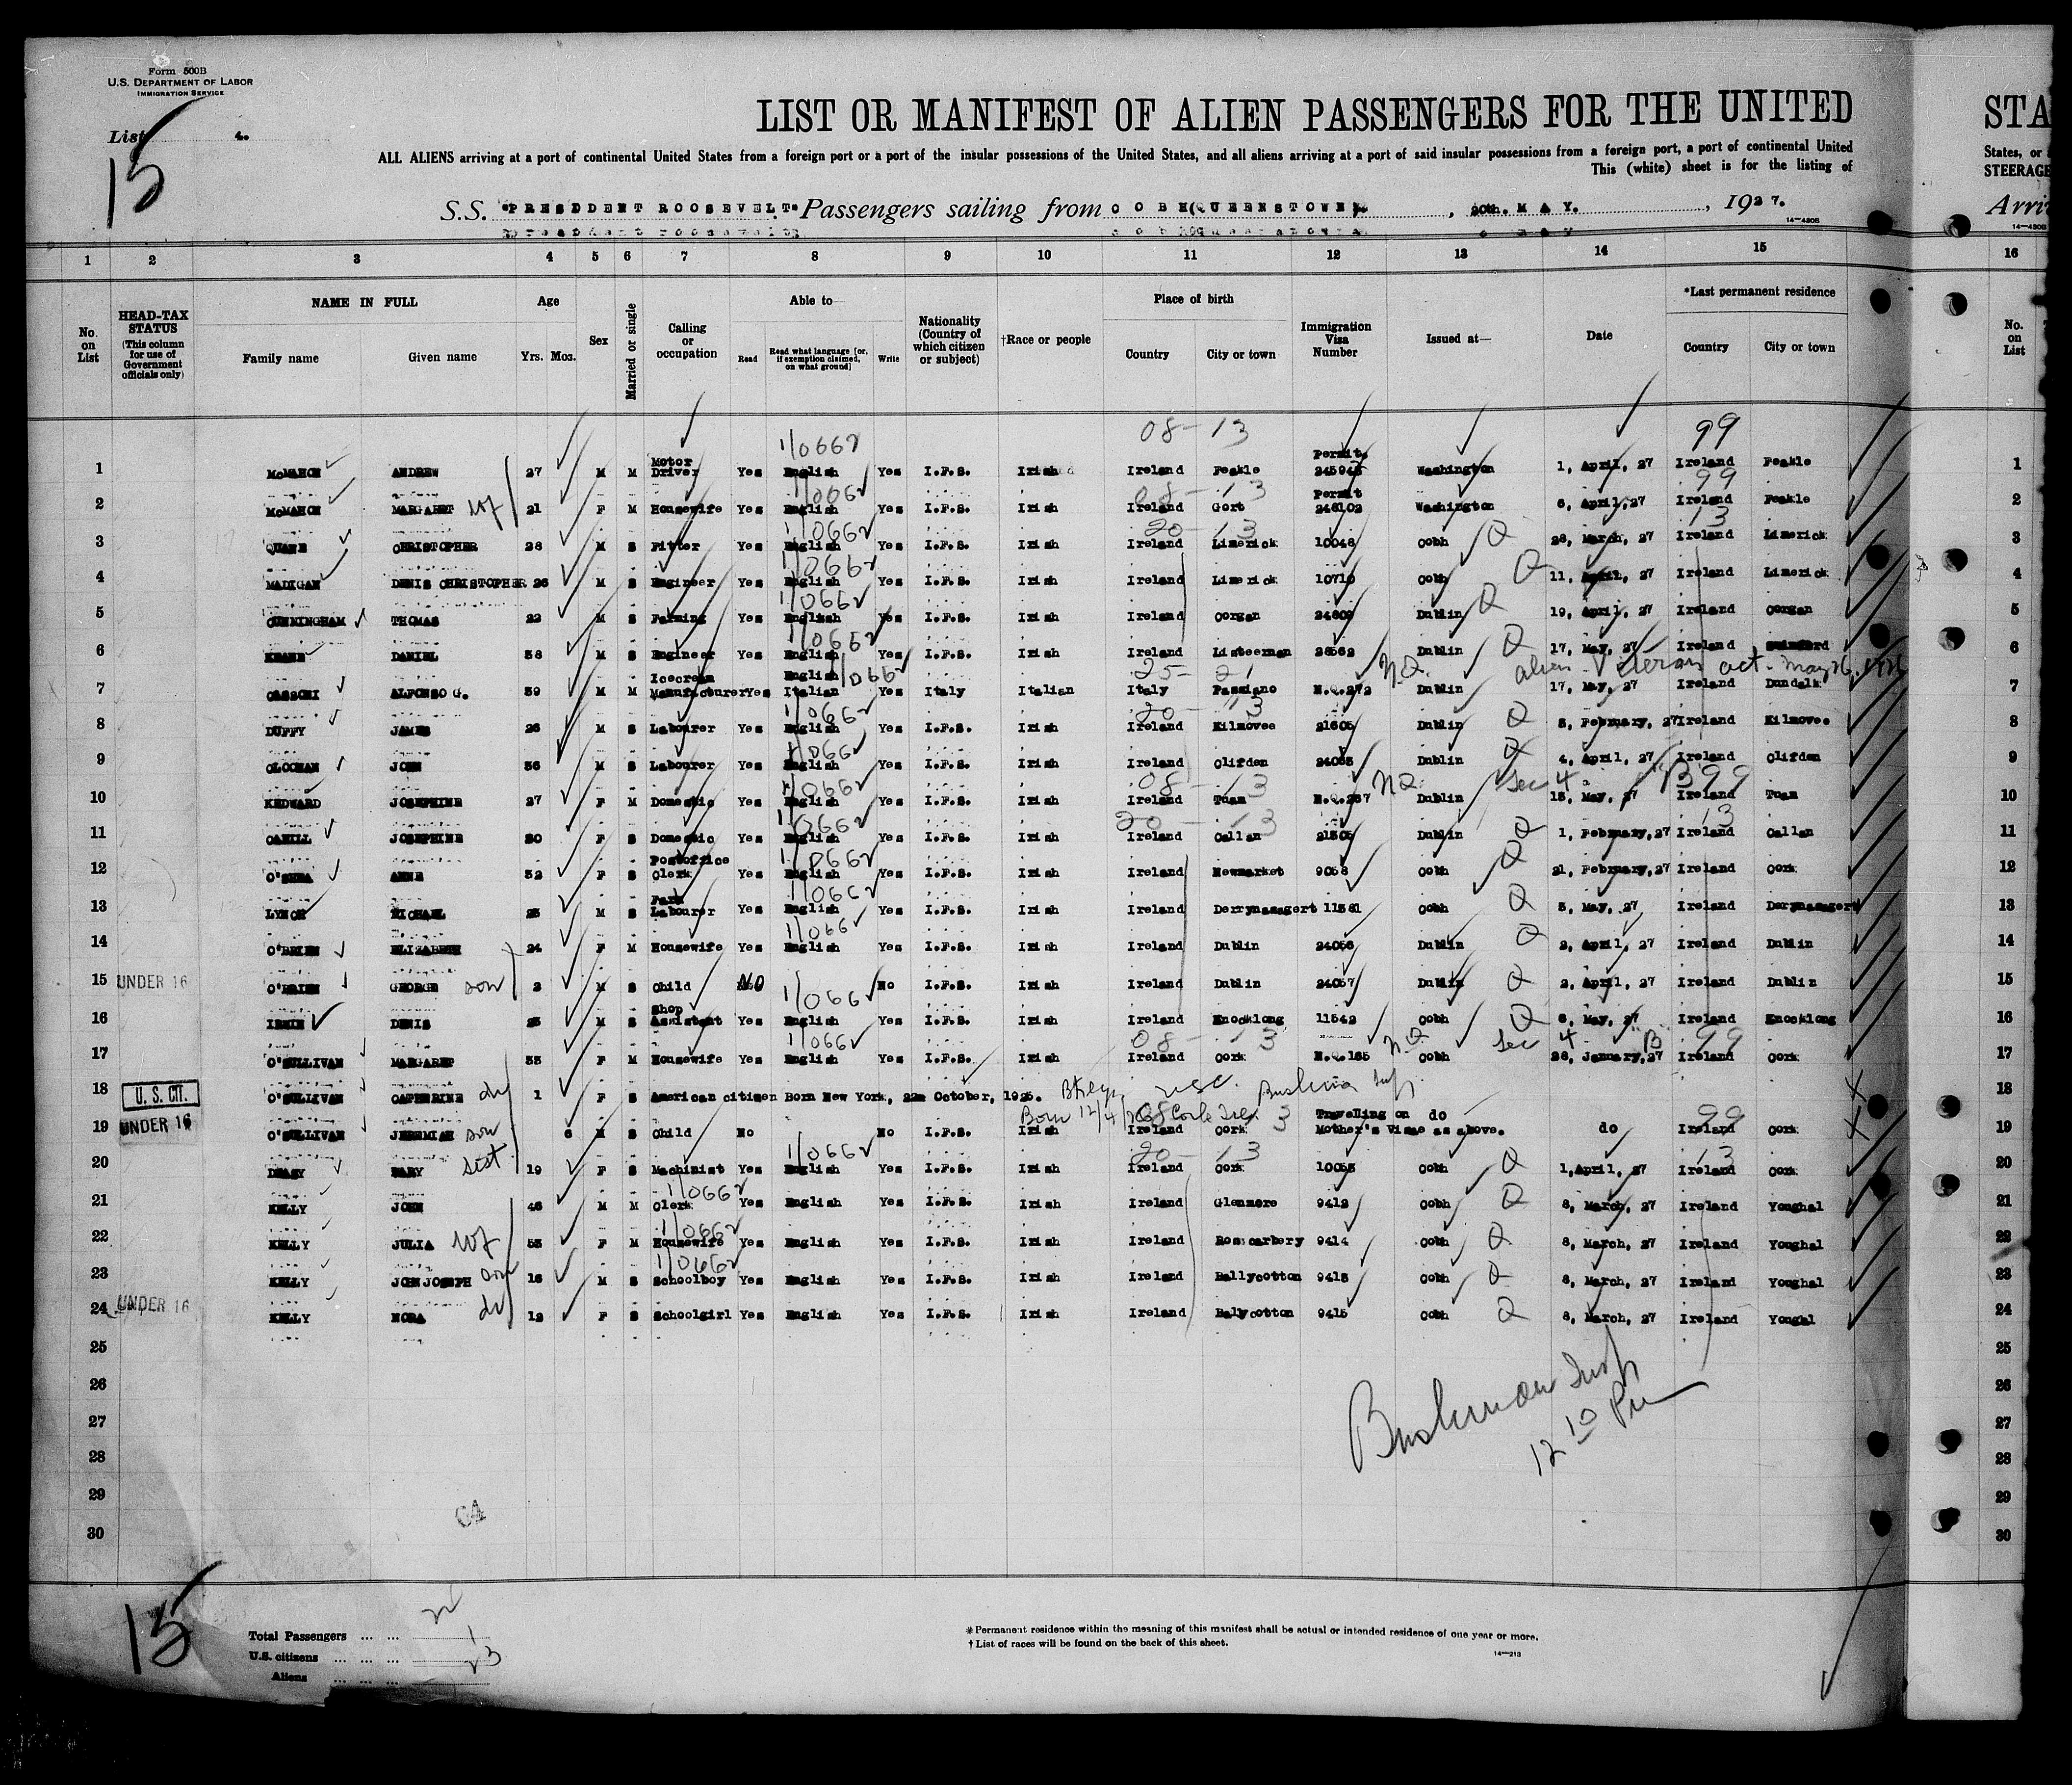 Form 500B
U.S. DEPARTMENT OF LABOR
IMMIGRATION SERVICE
List 4.
15
LIST OR MANIFEST OF ALIEN PASSENGERS FOR THE UNITED
STA
ALL ALIENS arriving at a port of continental United States from a foreign port or a port of the insular possessions of the United States, and all aliens arriving at a port of said insular possessions from a foreign port, a port of continental United
States, or
This (white) sheet is for the listing of
STEERAGE
S.S. "PRESDDENT ROOSEVELT" Passengers sailing from COBH(QUEENSTOWN), 20th. MAY., 1927.
Arri
14—430B
1 2 3 4 5 6 7 8 9 10 11 12 13 14 15 16
No. on List
HEAD-TAX STATUS (This column for use of Government officials only)
NAME IN FULL
Family name Given name
Age
Yrs. Mos.
Sex
Married or single
Calling or occupation
Able to—
Read Read what language [or, if exemption claimed, on what ground] Write
Nationality (Country of which citizen or subject)
†Race or people
Place of birth
Country City or town
Immigration Visa Number
Issued at—
Date
*Last permanent residence
Country City or town
No. on List
08-13 99
1 McMAHON ANDREW 27 M M Motor Driver Yes English Yes I.F.S. Irish Ireland Feakle Permit. Washington 1, April, 27 Ireland Feakle 1
2 McMAHON MARGARET wf 21 F M Housewife Yes English Yes I.F.S. Irish Ireland Gort Permit 246102 Washington 6, April, 27 Ireland Feakle 2
3 QUANE CHRISTOPHER 28 M S Fitter Yes English Yes I.F.S. Irish Ireland Limerick 10048 Cobh Q 28, March, 27 Ireland Limerick 3
4 MADIGAN DENIS CHRISTOPHER 26 M S Engineer Yes English Yes I.F.S. Irish Ireland Limerick 10710 Cobh Q 11, April, 27 Ireland Limerick 4
5 CUNNINGHAM THOMAS 22 M S Farming Yes English Yes I.F.S. Irish Ireland Corgan Dublin Q 19, April, 27 Ireland Corgan 5
6 KEANE DANIEL 38 M S Engineer Yes English Yes I.F.S. Irish Ireland Listeenan Dublin Q 17, May, 27 Ireland 6
7 ALFONSO G. 39 M M Icecream Manufacturer Yes English Italian Yes Italy Italian Italy Passiano N.Q.272 NQ Dublin Alien Veteran act - May 26, 1926 17, May, 27 Ireland Dundalk 7
8 DUFFY JAMES 26 M S Labourer Yes English Yes I.F.S. Irish Ireland Kilmovee 21605 Dublin Q 5, February, 27 Ireland Kilmovee 8
9 CLOONAN JOHN 36 M S Labourer Yes English Yes I.F.S. Irish Ireland Clifden Dublin Q 4, April, 27 Ireland Clifden 9
10 KEDWARD JOSEPHINE 27 F M Domestic Yes English Yes I.F.S. Irish Ireland Tuam N.Q.267 NQ Dublin Sec 4 "B" 99 May, 27 Ireland Tuam 10
11 CAHILL JOSEPHINE 20 F S Domestic Yes English Yes I.F.S. Irish Ireland Callan Dublin Q 1, February, 27 Ireland Callan 11
12 O'SHEA ANNE 32 F S Postoffice Clerk Yes English Yes I.F.S. Irish Ireland Newmarket 9058 Cobh Q 21, February, 27 Ireland Cork 12
13 LYNCH MICHAEL 25 M S Farm Labourer Yes English Yes I.F.S. Irish Ireland Derrynasagert 11581 Cobh Q May, 27 Ireland Derrynasagert 13
14 O'BRIEN ELIZABETH 24 F M Housewife Yes English Yes I.F.S. Irish Ireland Dublin 24056 Dublin Q 2, April, 27 Ireland Dublin 14
15 UNDER 16 O'BRIEN GEORGE son 2 M S Child NO No I.F.S. Irish Ireland Dublin 24057 Dublin Q 2, April, 27 Ireland Dublin 15
16 DENIS 25 M S Shop Assistant Yes English Yes I.F.S. Irish Ireland Knocklong 11542 Cobh Q 6, May, 27 Ireland Knocklong 16
17 O'SULLIVAN MARGARET 33 F M Housewife Yes English Yes I.F.S. Irish Ireland Cork N.Q.165 NQ Cobh Sec 4 "B" 99 26, January, 27 Ireland Cork 17
18 U. S. CIT. O'SULLIVAN CATHERINE da 1 F S American citizen Born New York, 22n October, 1925. USC. 18
19 UNDER 16 O'SULLIVAN JEREMIAH son 6 M S Child No No I.F.S. Irish Ireland Cork Travelling on do Mother's Visae as above. do Ireland Cork 19
20 DEASY MARY sist 19 F S Machinist Yes English Yes I.F.S. Irish Ireland Cork 10055 Cobh Q 1, April, 27 Ireland Cork 20
21 KELLY JOHN 46 M M Clerk Yes English Yes I.F.S. Irish Ireland Glenmore 9412 Cobh Q 8, March, 27 Ireland Youghal 21
22 KELLY JULIA wf 55 F M Housewife Yes English Yes I.F.S. Irish Ireland Rosscarbery 9414 Cobh Q 8, March, 27 Ireland Youghal 22
23 KELLY JOHN JOSEPH son 16 M S Schoolboy Yes English Yes I.F.S. Irish Ireland Ballycotton 9413 Cobh Q 8, March, 27 Ireland Youghal 23
24 UNDER 16 KELLY NORA da 12 F S Schoolgirl Yes English Yes I.F.S. Irish Ireland Ballycotton 9415 Cobh Q 8, March, 27 Ireland Youghal 24
25 25
26 26
27 27
28 28
29 29
30 30
Bushman Insp
12 10 Pm
15
Total Passengers ... ...
U.S. citizens ... ... ... 1
Aliens ... ... ... 23
*Permanent residence within the meaning of this manifest shall be actual or intended residence of one year or more.
†List of races will be found on the back of this sheet.
14—213